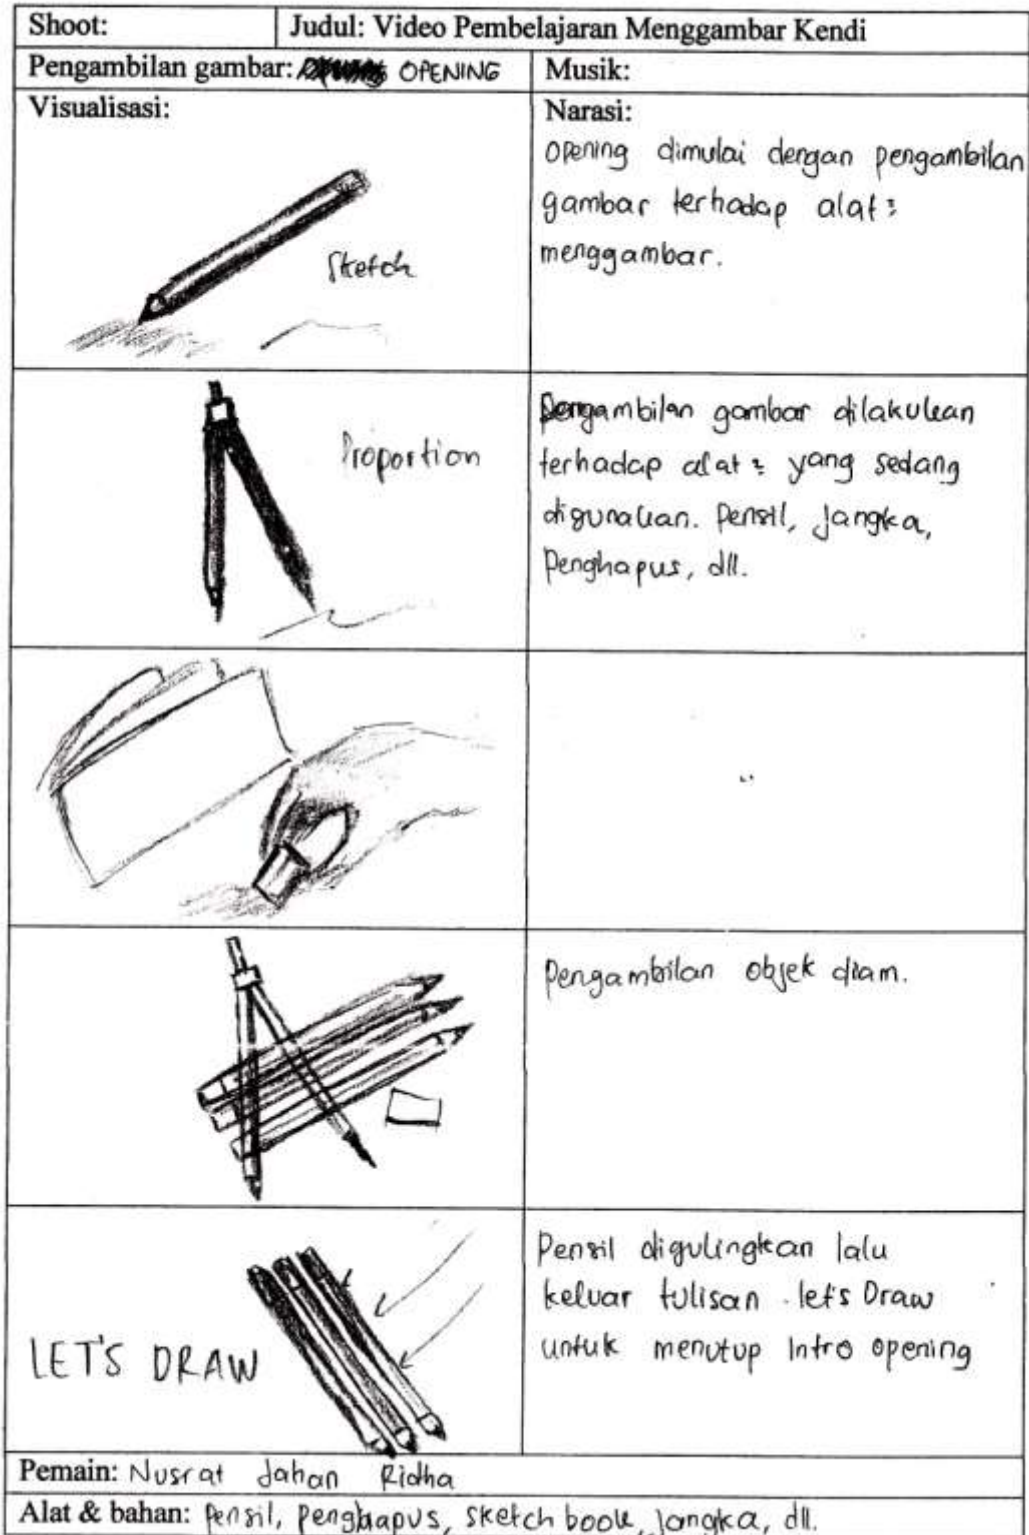 Shoot:
Judul: Video Pembelajaran Menggambar Kendi
Pengambilan gambar: OPENING
Musik:
Visualisasi:
Sketch
Narasi:
opening dimulai dengan pengambilan
gambar terhadap alat²
menggambar.
Proportion
Pengambilan gambar dilakukan
terhadap alat² yang sedang
digunakan. Pensil, jangka,
Penghapus, dll.
Pengambilan objek diam.
LET'S DRAW
Pensil digulingkan lalu
keluar tulisan let's Draw
untuk menutup Intro opening
Pemain: Nusrat Jahan Ridha
Alat & bahan: Pensil, penghapus, sketch book, jangka, dll.